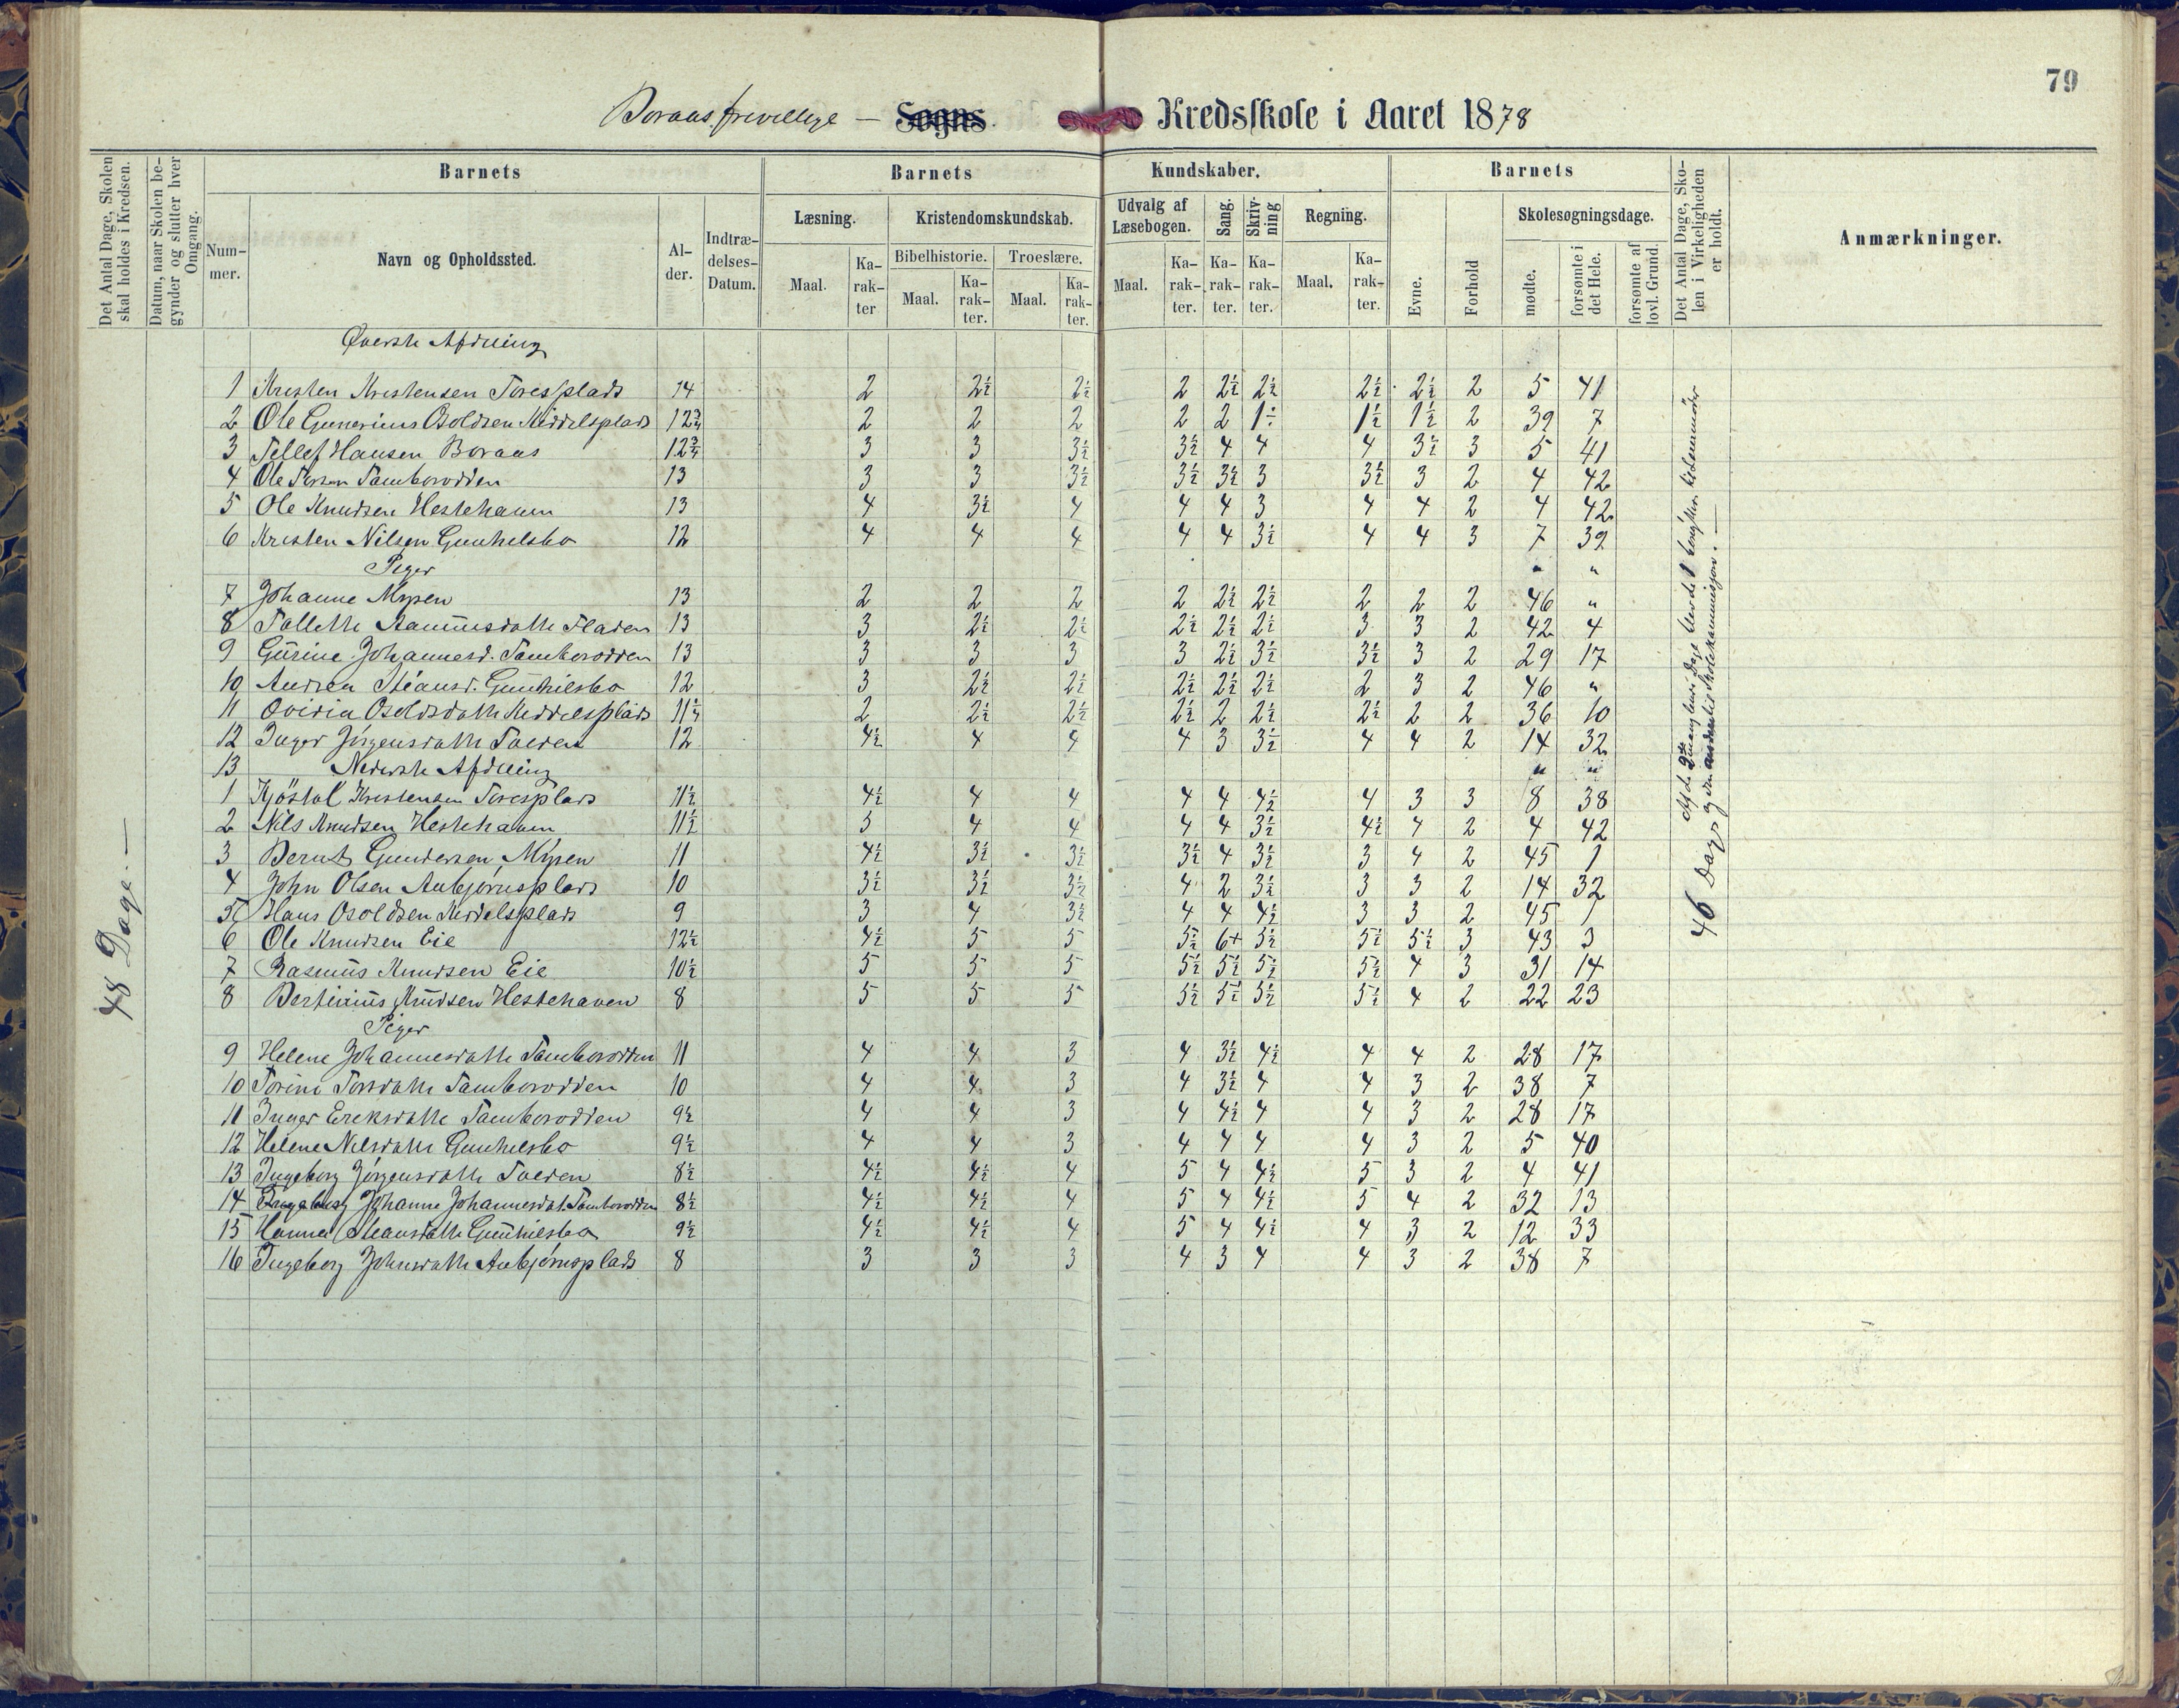 79
Boraas frivillige — Sogns Kredsskole i Aaret 1878
Det Antal Dage, Skolen skal holdes i Kredsen.
Datum, naar Skolen begynder og slutter hver Omgang.
Barnets
Barnets
Kundskaber.
Barnets
Det Antal Dage, Skolen i Virkeligheden er holdt.
Anmærkninger.
Nummer.
Navn og Opholdssted.
Alder.
Indtrædelses-Datum.
Læsning.
Kristendomskundskab.
Udvalg af Læsebogen.
Sang.
Skrivning
Regning.
Evne.
Forhold
Skolesøgningsdage.
Bibelhistorie.
Troeslære.
Maal.
Karakter
Maal.
Karakter.
Maal.
Karakter.
Maal.
Karakter.
Karakter.
Karakter.
Maal.
Karakter.
mødte.
forsømte i det Hele.
forsømte af lovl. Grund.
Øverste Afdeling
1 Kristen Kristensen Toresplads 14 2 2½ 2½ 2 2½ 2½ 2½ 2½ 2 5 41
2 Ole Gunerius Osoldsen Kiddelsplads 12¾ 2 2 2 2 2 1½ 1½ 1½ 2 39 7
3 Tellef Hansen Boraas 12¾ 3 3 3½ 3½ 4 4 4 3½ 3 5 41
4 Ole Torsen Tamborodden 13 3 3 3½ 3½ 3½ 3 3½ 3 2 4 42
5 Ole Knudsen Hestehaven 13 4 3½ 4 4 4 3 4 4 2 4 42
6 Kristen Nilsen Gunhelsbo 12 4 4 4 4 4 3½ 4 4 3 7 39
Piger " "
7 Johanne Mysen 13 2 2 2 2 2½ 2½ 2 2 2 46 "
8 Tallette Rasmusdatte Fladen 13 3 2½ 2½ 2½ 2½ 2½ 3 3 2 42 4
9 Gurine Johannesd. Tamborodden 13 3 3 3 3 2½ 3½ 3½ 3 2 29 17
10 Andrea Steansd. Gunhilsbo 12 3 2½ 2½ 2½ 2½ 2½ 2 3 2 46 "
11 Ovidia Osoldsdatte Kiddelsplads 11¼ 2 2½ 2½ 2½ 2 2½ 2½ 2 2 36 10
12 Inger Jørgensdatte Toeden 12 4½ 4 4 4 3 3½ 4 4 2 14 32
13 Nederste Afdeling " "
1 Kjöstol Kristensen Toresplads 11½ 4½ 4 4 4 4 4½ 4 3 3 8 38
2 Nils Knudsen Hestehaven 11½ 3 4 4 4 4 3½ 4½ 4 2 4 42
3 Bernt Gundersen Mysen 11 4½ 3½ 3½ 3½ 4 3½ 3 4 2 45 1
4 John Olsen Anbjørnsplads 10 3½ 3½ 3½ 4 2 3½ 3 3 2 14 32
5 Hans Osoldsen Kiddelsplads 9 3 4 3½ 4 4 4½ 3 3 2 45 1
6 Ole Knudsen Eie 12½ 4½ 5 5 5½ 6+ 5½ 5½ 5½ 3 43 3
7 Rasmus Knudsen Eie 10½ 5 5 5 5½ 5½ 5½ 5½ 4 3 31 14
8 Bertinius Knudsen Hestehaven 8 5 5 5 5½ 5½ 5½ 5½ 4 2 22 23
Piger
9 Helene Johannesdatte Tamborodden 11 4 4 3 4 3½ 4½ 4 4 2 28 17
10 Torine Torsdatte Tamborodden 10 4 4 3 4 3½ 4 4 3 2 38 7
11 Inger Eriksdatte Tamborodden 9½ 4 4 3 4 4½ 4 4 3 2 28 17
12 Helene Nilsdatte Gunhelsbo 9½ 4 4 3 4 4 4 4 3 2 5 40
13 Ingeborg Jørgensdatte Toeden 8½ 4½ 4½ 4 5 4 4½ 5 3 2 4 41
14 Johanne Johannesdat. Tamborodden 8½ 4½ 4½ 4 5 4 4½ 5 4 2 32 13
15 Hanna Steansdatte Gunhilsbo 9½ 4½ 4½ 4 5 4 4½ 4 3 2 12 33
16 Ingeborg Johnsdatte Anbjørnsplads 8 3 3 3 4 3 4 4 3 2 38 7
48 Dage.—
46 Dage
Af de manglende Dage